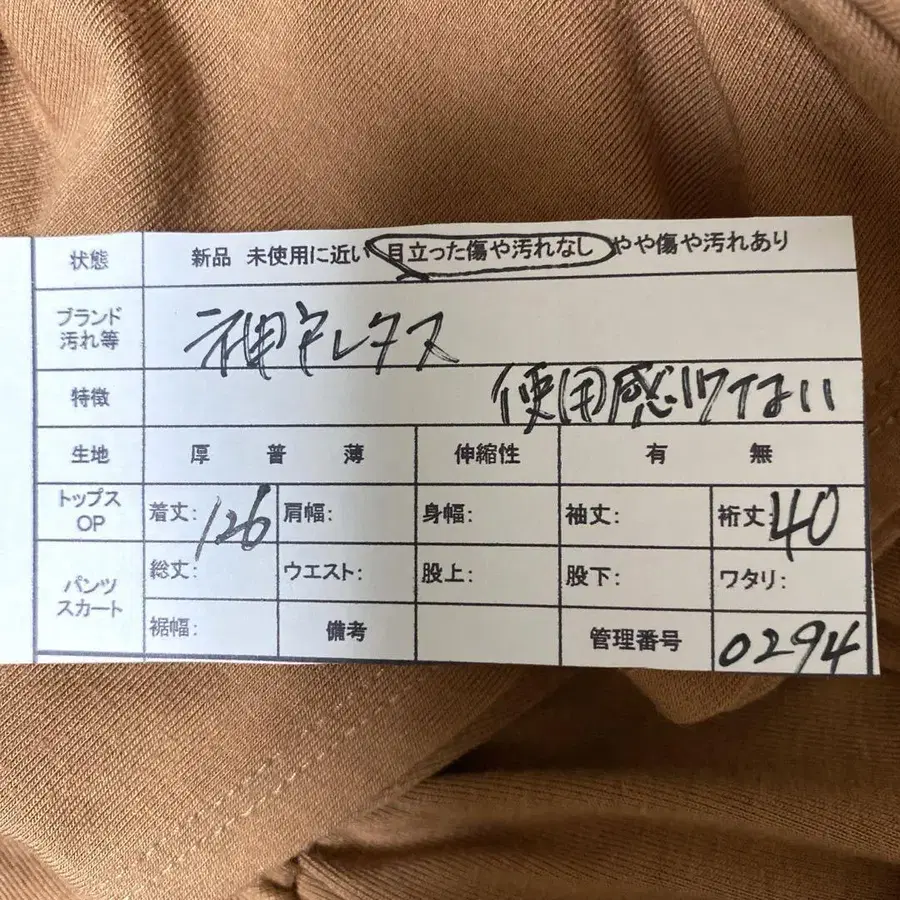 状態 新品 未使用に近い 目立った傷や汚れなし やや傷や汚れあり
ブランド
汚れ等 神戸レタス
特徴 使用感はない
生地 厚 普 薄 伸縮性 有 無
トップス
OP 着丈:126 肩幅: 身幅: 袖丈: 裄丈:40
パンツ
スカート 総丈: ウエスト: 股上: 股下: ワタリ:
裾幅: 備考 管理番号 0294